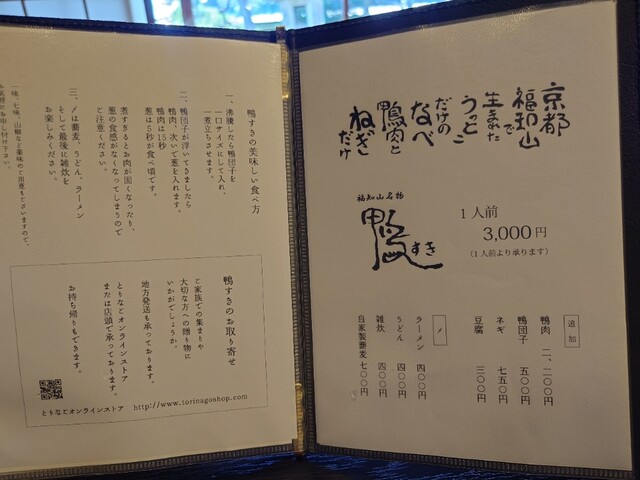 京都
福知山
で
生まれた
うっとこ
だけの
なべ
鴨肉と
ねぎ
だけ
福知山名物
鴨すき
1人前
3,000円
(1人前より承ります)
追加
鴨肉 二、二〇〇円
鴨団子 五〇〇円
ネギ 七五〇円
豆腐 三〇〇円
〆
ラーメン 四〇〇円
うどん 四〇〇円
雑炊 四〇〇円
自家製蕎麦 七〇〇円
鴨すきの美味しい食べ方
一、沸騰したら鴨団子を
一口サイズにして入れ、
一煮立ちさせます。
二、鴨団子が浮いてきましたら
鴨肉、次いで葱を入れます。
鴨肉は15秒
葱は5秒が食べ頃です。
煮すぎるとお肉が固くなったり、
葱の食感がなくなってしまうので
ご注意ください。
三、〆は蕎麦、うどん、ラーメン
そして最後に雑炊を
お楽しみください。
一味、七味、山椒など薬味のご用意もございますので、
お気軽にお申し付け下さい。
鴨すきのお取り寄せ
ご家族での集まりや
大切な方への贈り物に
いかがでしょうか。
地方発送も承っております。
とりなごオンラインストア
または店頭で承っております。
お持ち帰りもできます。
とりなごオンラインストア http://www.torinagoshop.com